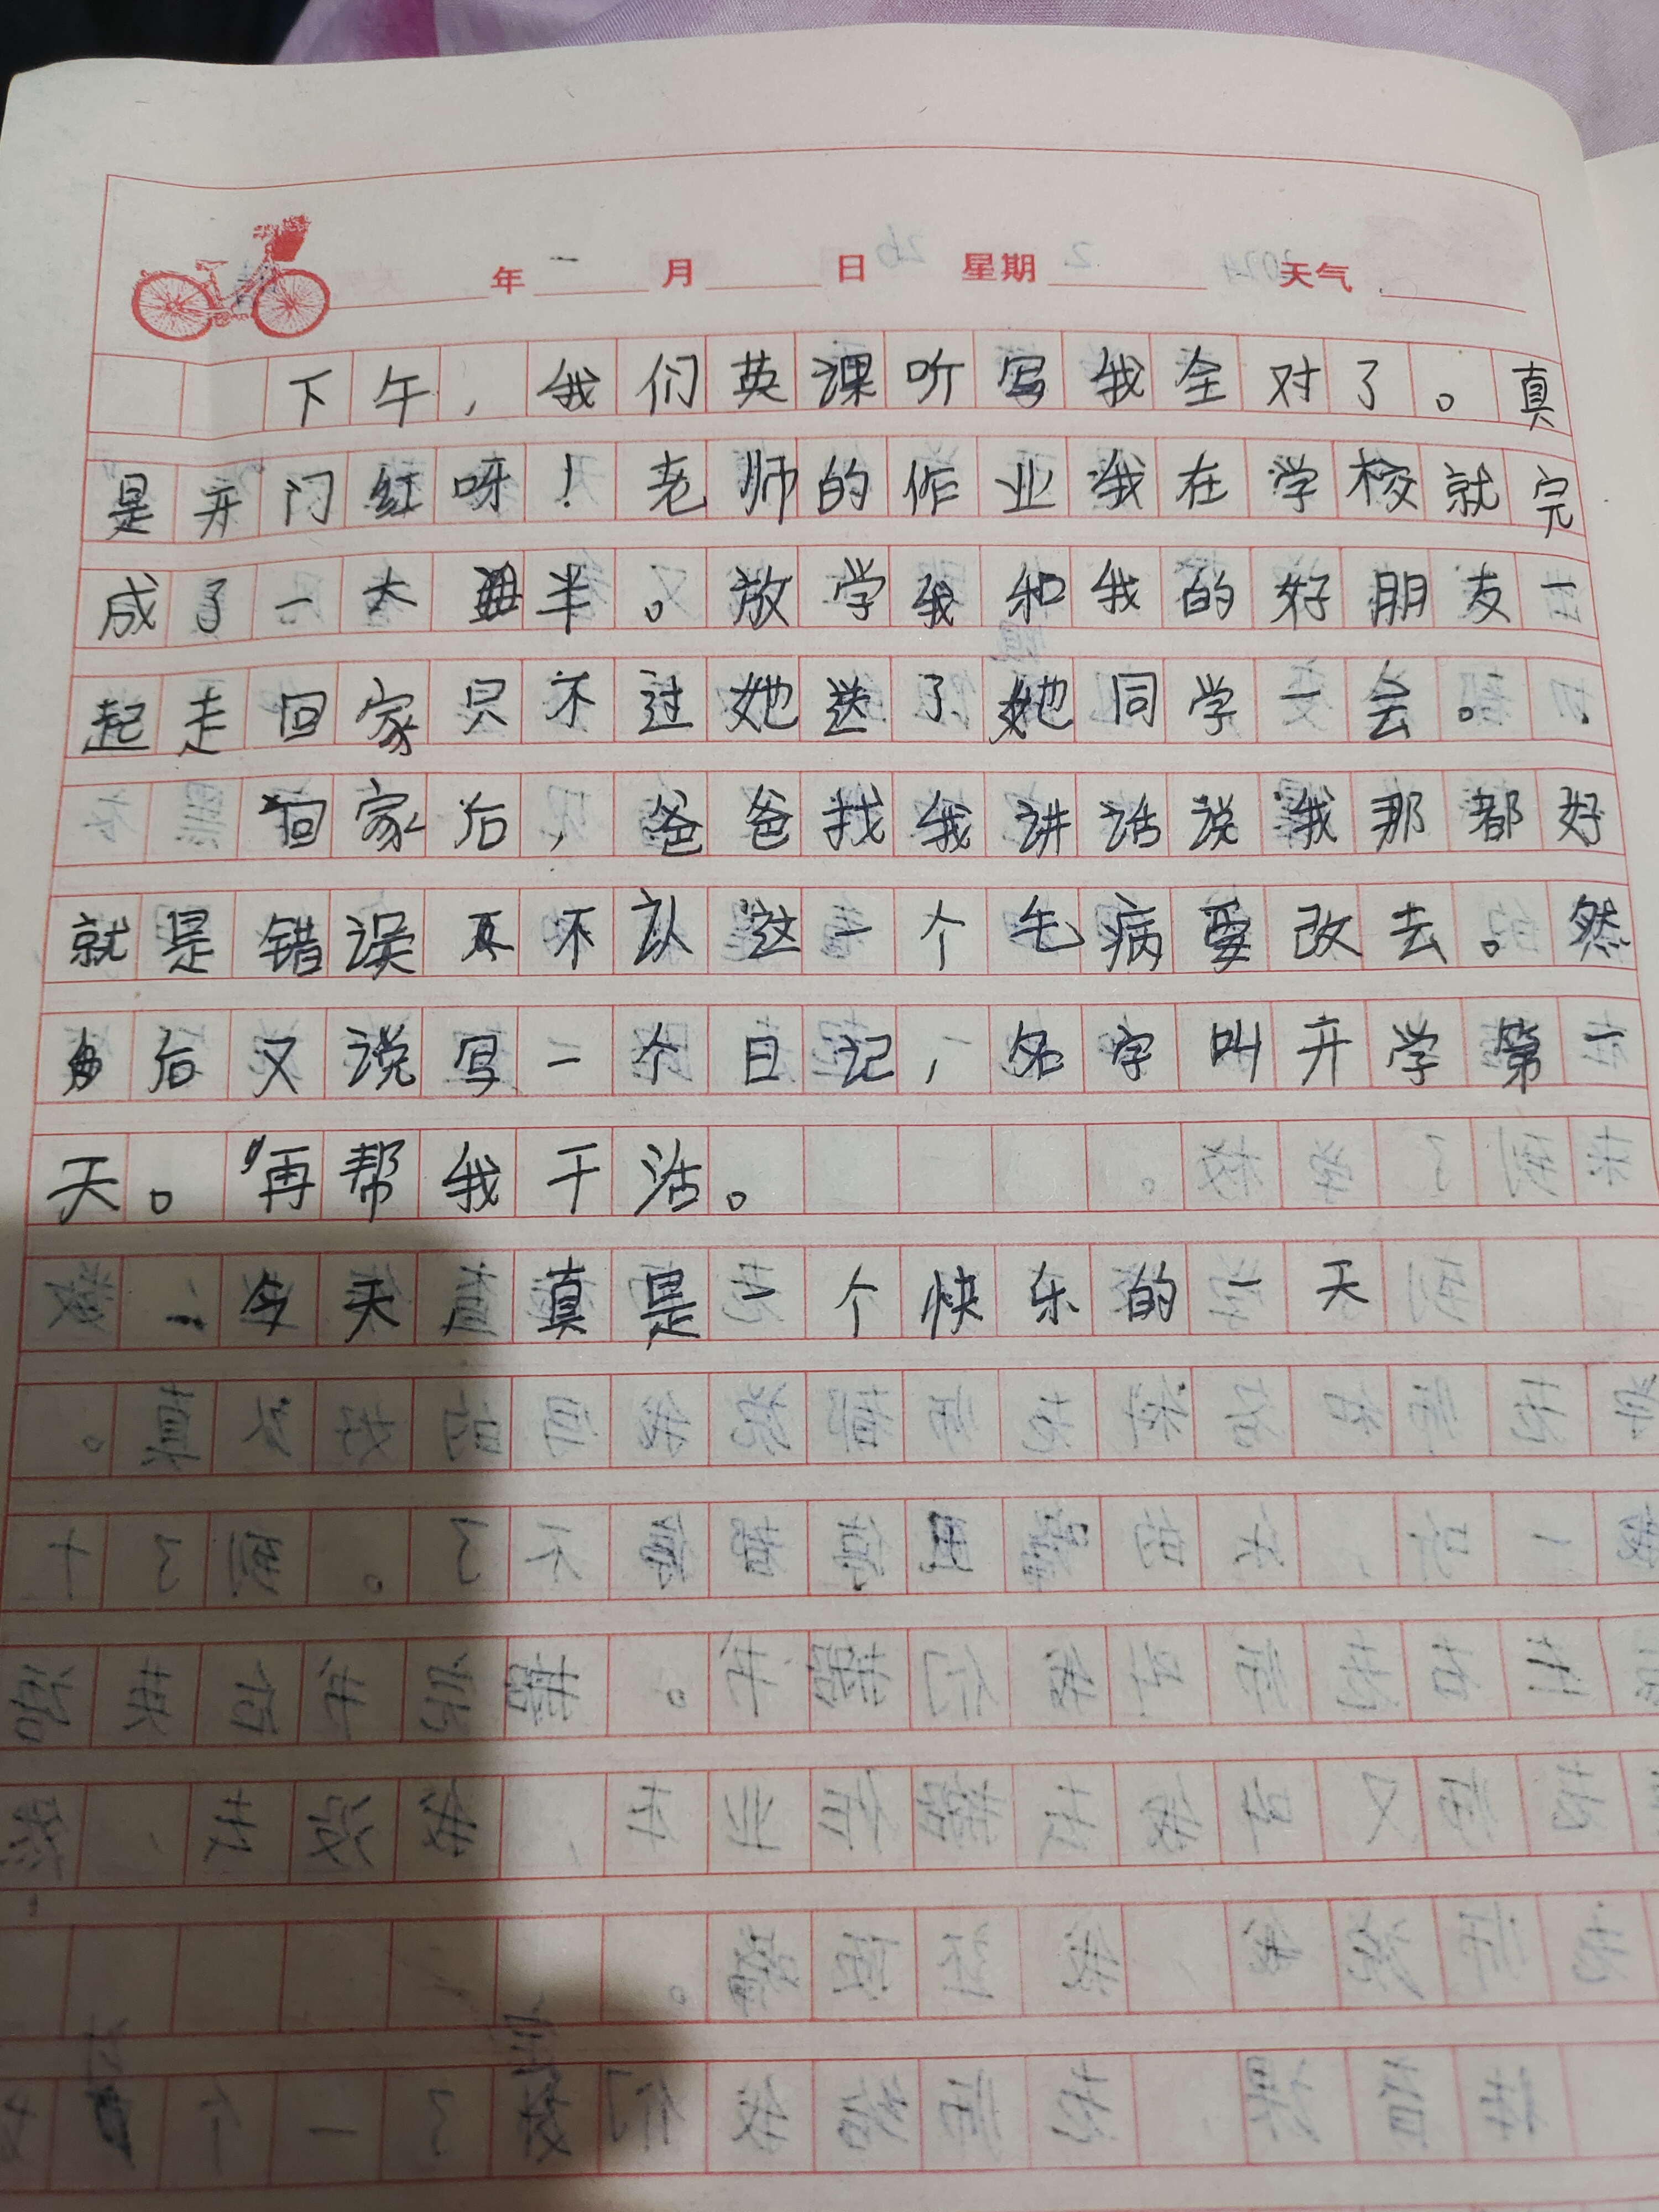 年 月 日 星期 天气
下午，我们英课听写我全对了。真
是开门红呀！老师的作业我在学校就完
成了一大半。放学我和我的好朋友一
起走回家只不过她送了她同学一会。
回家后，爸爸找我讲话说我那都好
就是错误不认这一个毛病要改去。然
后又说写一个日记，名字叫开学第一
天。再帮我干活。
今天真是一个快乐的一天